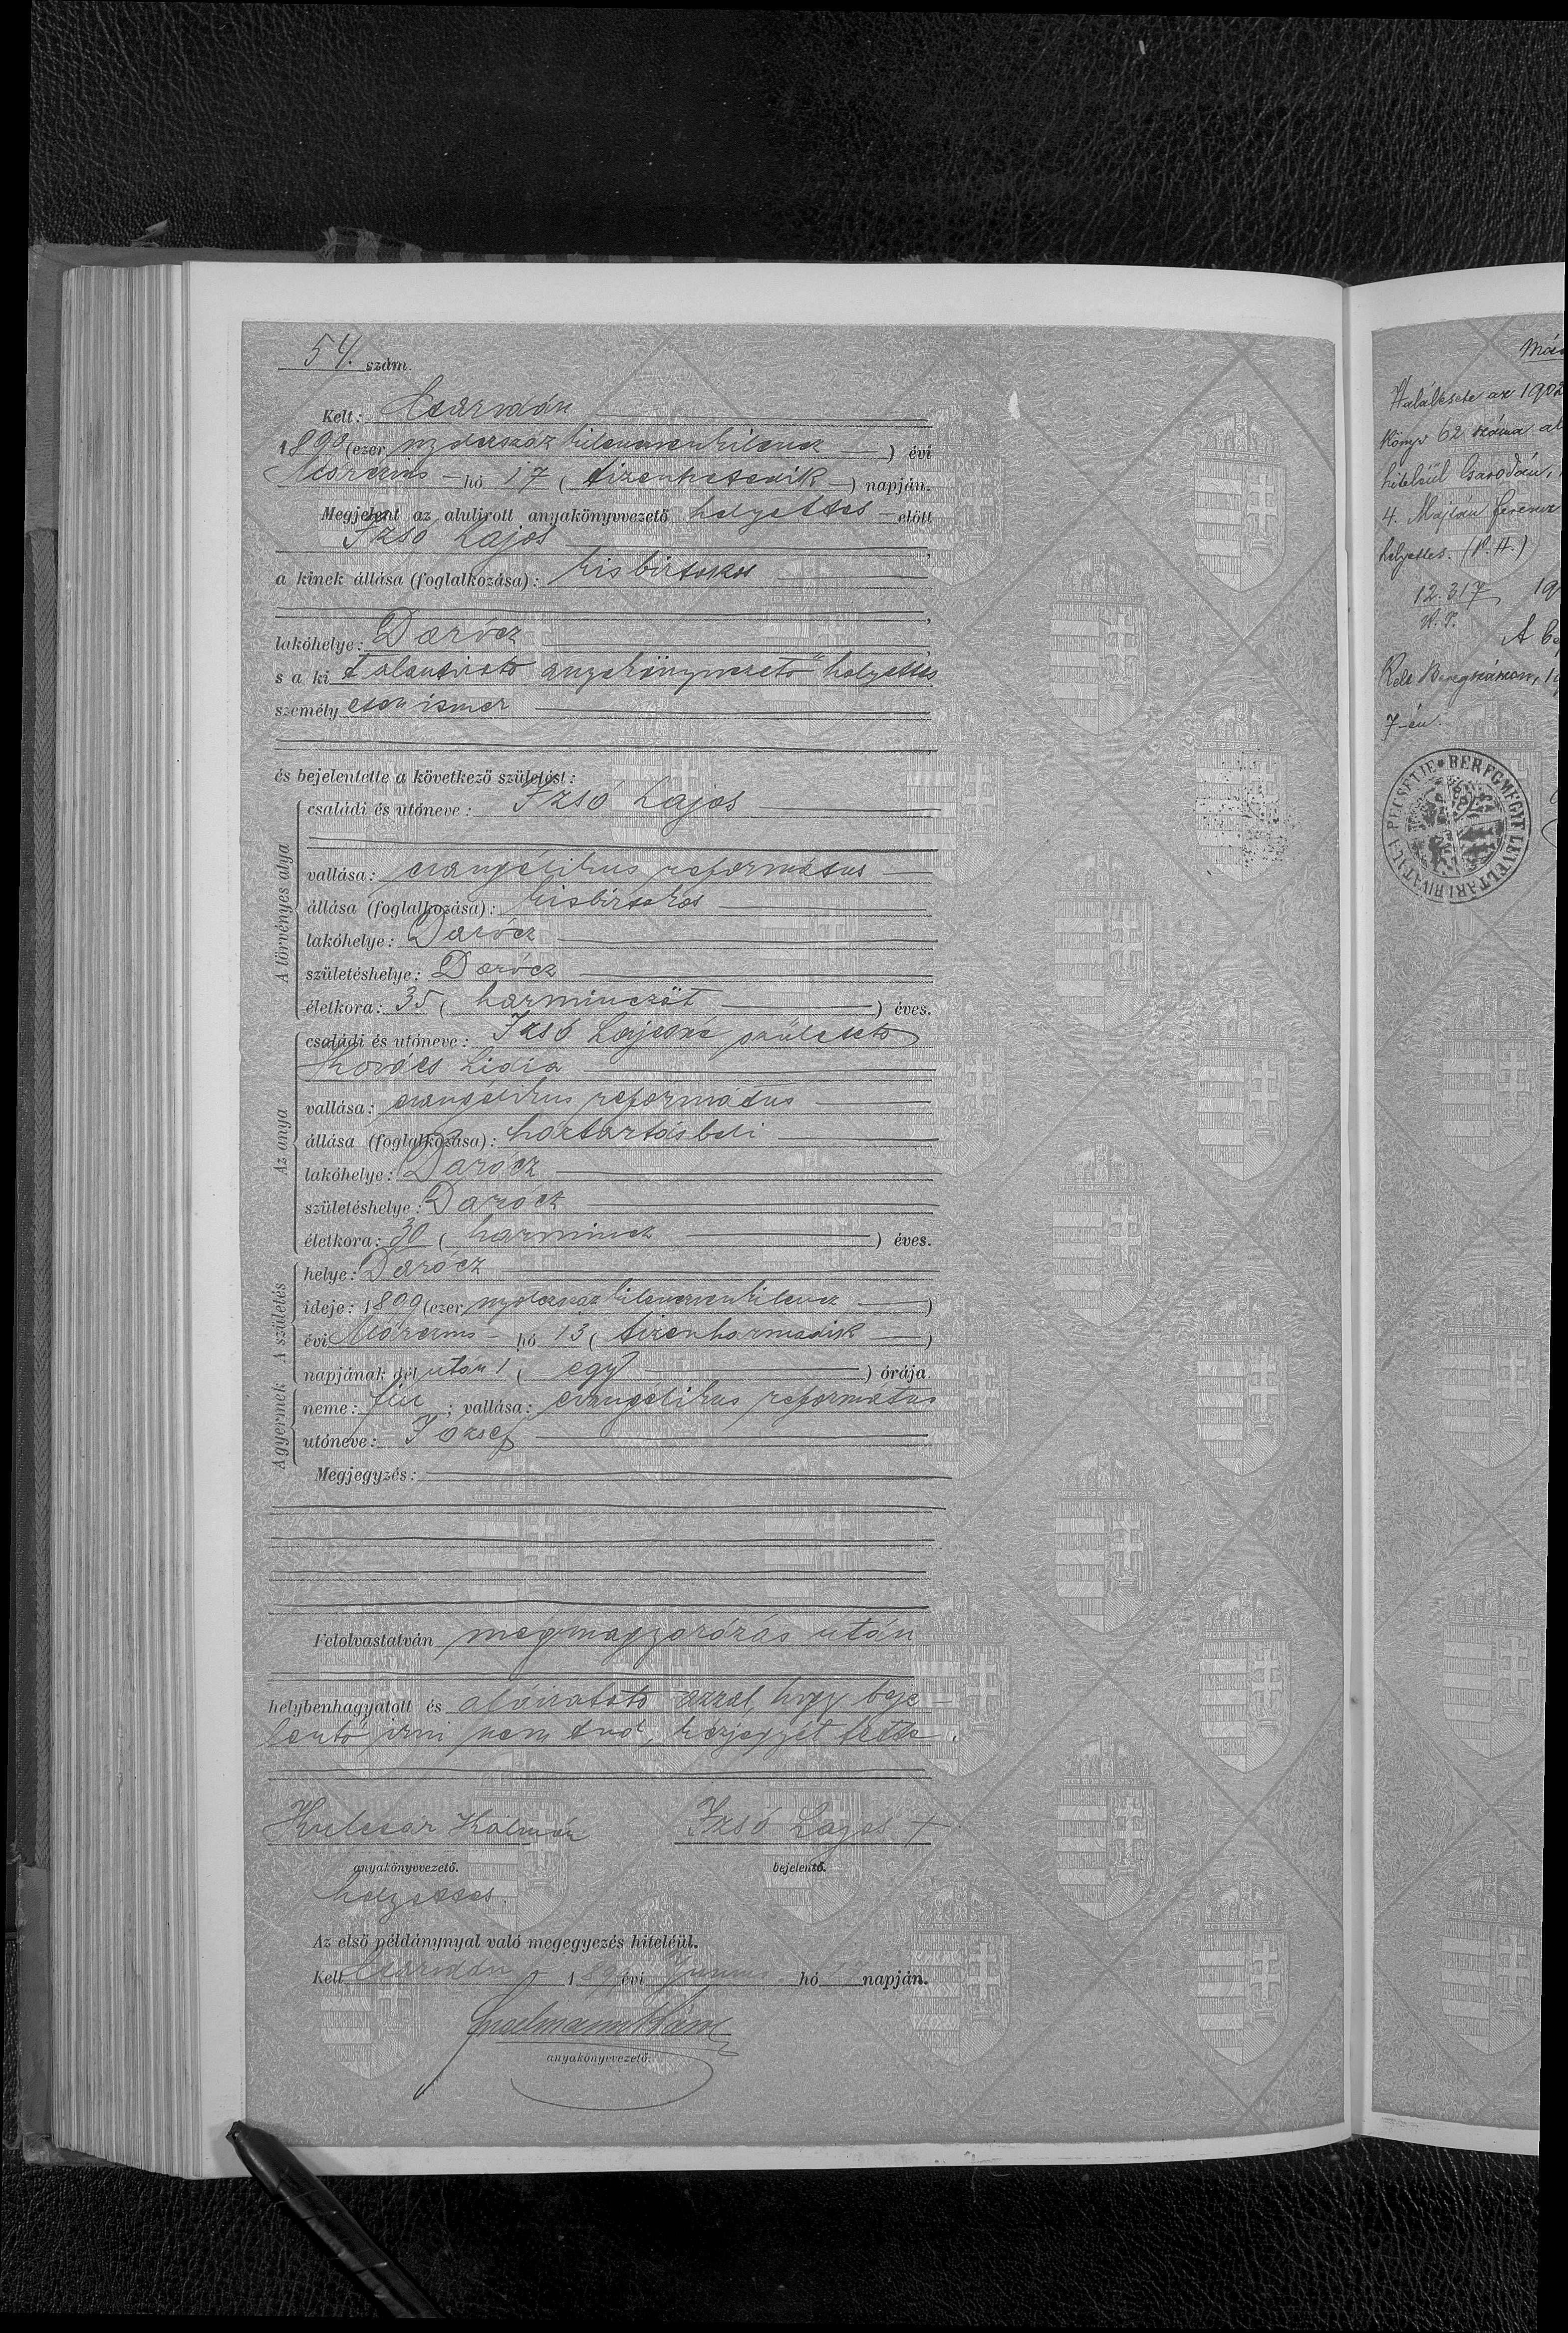 54. szám.
Kelt: Csarodán
1899 (ezer nyolcszáz kilencvenkilencz ) évi
Márczius hó 17 ( tizenhetedik ) napján.
Megjelent az alulirott anyakönyvvezető helyettes előtt
Izsó Lajos,
a kinek állása (foglalkozása): kisbirtokos
,
lakóhelye: Darócz
s a kit alulirott anyakönyvvezető helyettes
személyesen ismer
és bejelentette a következő születést:
A törvényes atya
családi és utóneve: Izsó Lajos
vallása: evangélikus református
állása (foglalkozása): kisbirtokos
lakóhelye: Darócz
születéshelye: Darócz
életkora: 35 ( harminczöt ) éves.
Az anya
családi és utóneve: Izsó Lajosné született
Kovács Lidia
vallása: evangélikus református
állása (foglalkozása): háztartásbeli
lakóhelye: Darócz
születéshelye: Darócz
életkora: 30 ( harmincz ) éves.
A születés
helye: Darócz
ideje: 1899 (ezer nyolczszáz kilenczvenkilencz )
évi Márczius hó 13 ( tizenharmadik )
napjának dél után 1 ( egy ) órája.
A gyermek
neme: fiu ; vallása: evangelikus református
utóneve: József
Megjegyzés:
Felolvastatván megmagyarázás után
helybenhagyatott és aláiratott azzal, hogy beje-
lentő irni nem tud, kézjegyét tette.
Kulcsár Kálmán Izsó Lajos +
anyakönyvvezető. bejelentő.
helyettes.
Az első példánynyal való megegyezés hiteléül.
Kelt Csarodán 1899 évi Junius hó 17 napján.
anyakönyvvezető.
Halálesete az 1902
könyv 62 száma al
hiteléül Csarodán, 1
4. Majláu Ferencz
helyettes. (P. H.)
12.317 19
A be
Kelt Beregszászon, 19
7-én.
BEREGMEGYE LEVÉLTÁRI HIVATALA PECSÉTJE